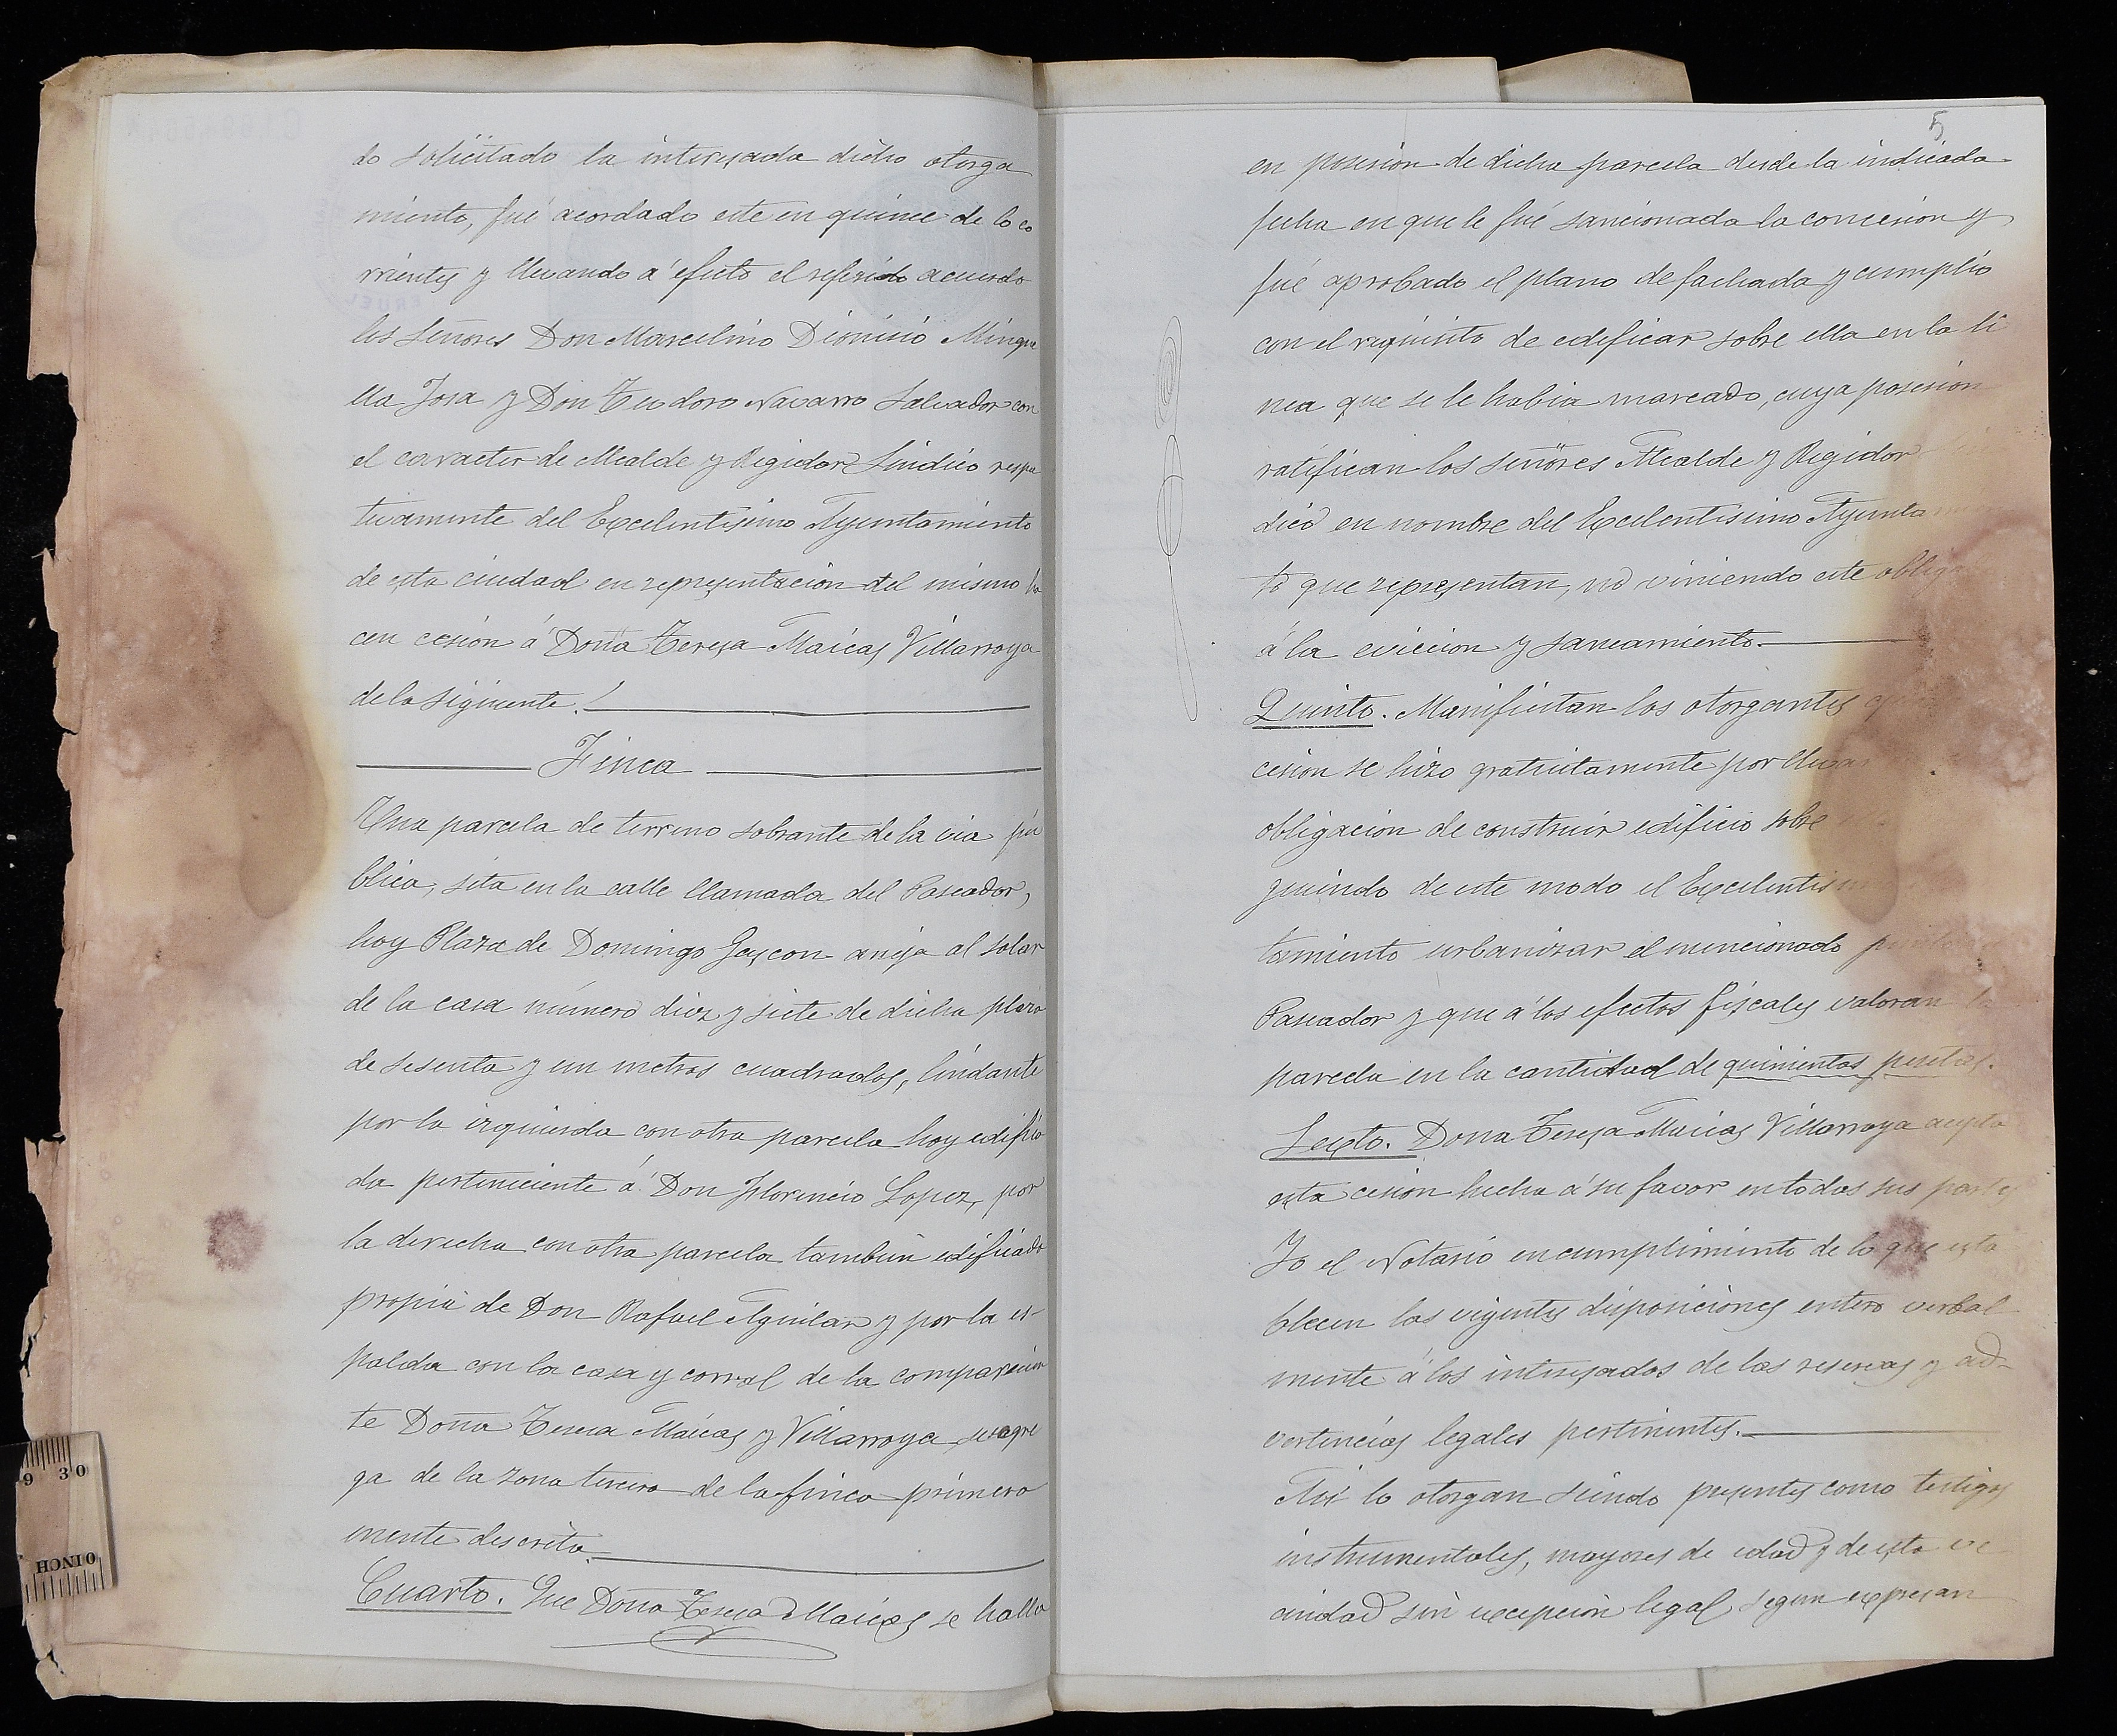 do solicitado la interesada dicho otorga
miento, fué acordado este en quince de lo co
rrientes y llevando á efecto el referido acuerdo
los Señores Don Marcelino Dionisio Mingue
lla Josa y Don Teodoro Navarro Salvador con
el caracter de Alcalde y Regidor Sindico respec
tivamente del Excelentisimo Ayuntamiento
de esta ciudad en representacion del mismo ha
cen cesion á Doña Teresa Maicas Villarroya
de la siguiente:
Finca
Una parcela de terreno sobrante de la via pú
blica, sita en la calle llamada del Paseador,
hoy Plaza de Domingo Gascon aneja al solar
de la casa número diez y siete de dicha plaza
de sesenta y un metros cuadrados, lindante
por la izquierda con otra parcela hoy edifica
da perteneciente á Don Florencio Lopez, por
la derecha con otra parcela tambien edificada
propia de Don Rafael Aguilar y por la es-
palda con la casa y corral de la comparecien
te Doña Teresa Maicas y Villarroya, se agre
ga de la zona tercera de la finca primera
mente descrita.
Cuarto. Que Doña Teresa Maicas se halla
5
en posesion de dicha parcela desde la indicada
fecha en que le fué sancionada la concesion y
fué aprobado el plano de fachada y cumplio
con el requisito de edificar sobre ella en la li
nea que se le habia marcado, cuya posesion
ratifican los señores Alcalde y Regidor
dico en nombre del Excelentisimo Ayuntamien
to que representan, no viniendo este obliga
á la eviccion y saneamiento.
Quinto. Manifiestan los otorgantes q
cesion se hizo gratuitamente por llevar
obligacion de construir edificio sobre
guiendo de este modo el Excelentisim
tamiento urbanizar el mencionado punto
Paseador y que á los efectos fiscales valoran la
parcela en la cantidad de quinientas pesetas.
Sexto. Doña Teresa Maicas Villarroya acepta
esta cesion hecha á su favor en todas sus partes
Yo el Notario en cumplimiento de lo que esta
blecen las vigentes disposiciones entero verbal
mente á los interesados de las reservas y ad-
vertencias legales pertinentes.
Así lo otorgan siendo presentes como testigos
instrumentales, mayores de edad y de esta ve
cindad sin excepcion legal, segun expresan
9 30
0 INCH